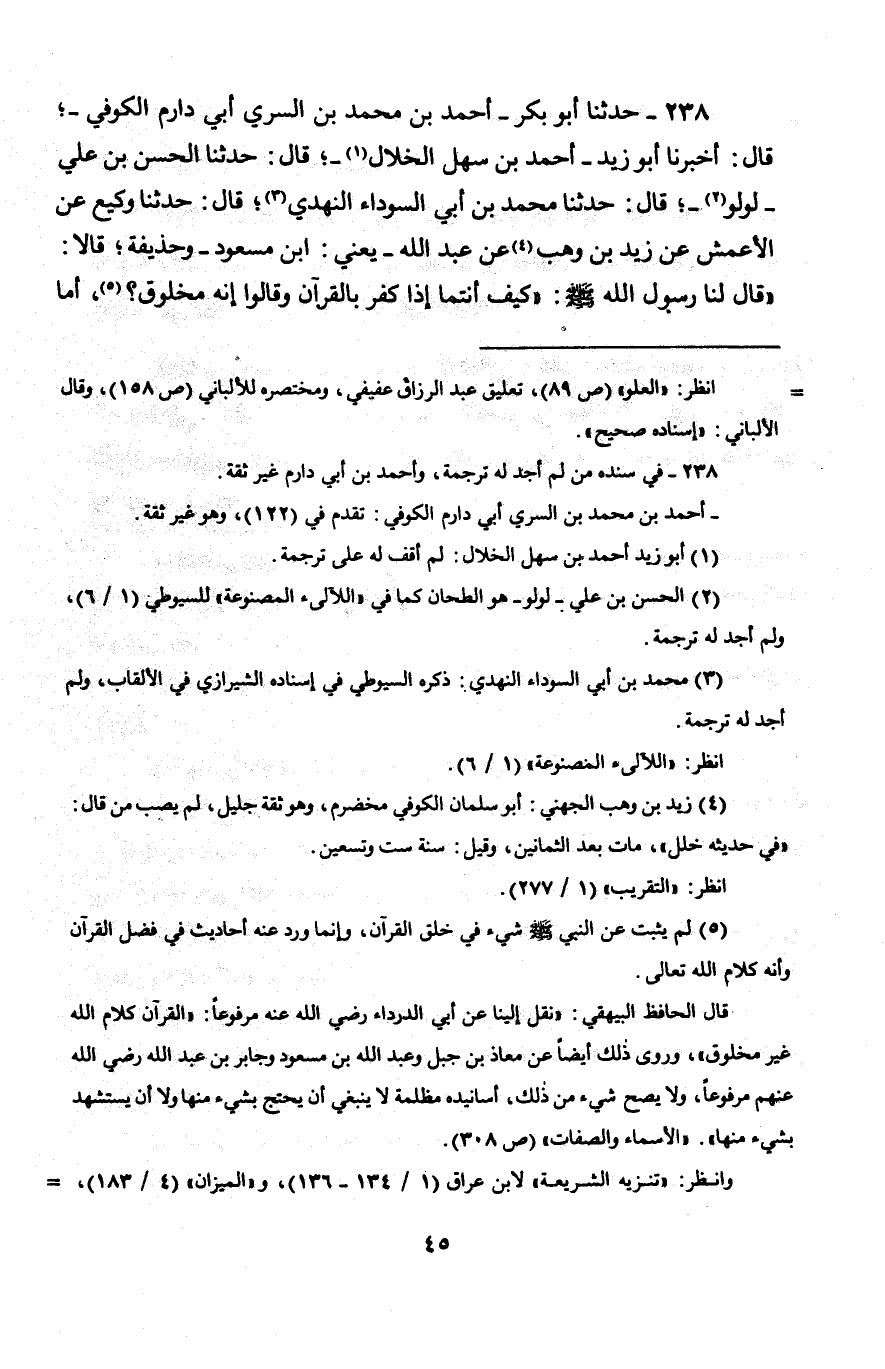 ٢٣٨ ـ حدثنا أبو بكر ـ أحمد بن محمد بن السري أبي دارم الكوفي ـ؛
قال: أخبرنا أبو زيد ـ أحمد بن سهل الخلال(١) ـ؛ قال: حدثنا الحسن بن علي
ـ لولو(٢) ـ؛ قال: حدثنا محمد بن أبي السوداء النهدي(٣)؛ قال: حدثنا وكيع عن
الأعمش عن زيد بن وهب(٤) عن عبد الله ـ يعني: ابن مسعود ـ وحذيفة؛ قالا:
«قال لنا رسول الله ﷺ: «كيف أنتما إذا كفر بالقرآن وقالوا إنه مخلوق؟(٥)، أما
= انظر: «العلو» (ص ٨٩)، تعليق عبد الرزاق عفيفي، ومختصره للألباني (ص ١٥٨)، وقال
الألباني: «إسناده صحيح».
٢٣٨ ـ في سنده من لم أجد له ترجمة، وأحمد بن أبي دارم غير ثقة.
ـ أحمد بن محمد بن السري أبي دارم الكوفي: تقدم في (١٢٢)، وهو غير ثقة.
(١) أبو زيد أحمد بن سهل الخلال: لم أقف له على ترجمة.
(٢) الحسن بن علي ـ لولو ـ هو الطحان كما في «اللآلىء المصنوعة» للسيوطي (١ / ٦)،
ولم أجد له ترجمة.
(٣) محمد بن أبي السوداء النهدي: ذكره السيوطي في إسناده الشيرازي في الألقاب، ولم
أجد له ترجمة.
انظر: «اللآلىء المصنوعة» (١ / ٦).
(٤) زيد بن وهب الجهني: أبو سلمان الكوفي مخضرم، وهو ثقة جليل، لم يصب من قال:
«في حديثه خلل»، مات بعد الثمانين، وقيل: سنة ست وتسعين.
انظر: «التقريب» (١ / ٢٧٧).
(٥) لم يثبت عن النبي ﷺ شيء في خلق القرآن، وإنما ورد عنه أحاديث في فضل القرآن
وأنه كلام الله تعالى.
قال الحافظ البيهقي: «نقل إلينا عن أبي الدرداء رضي الله عنه مرفوعاً: «القرآن كلام الله
غير مخلوق»، وروى ذٰلك أيضاً عن معاذ بن جبل وعبد الله بن مسعود وجابر بن عبد الله رضي الله
عنهم مرفوعاً، ولا يصح شيء من ذٰلك، أسانيده مظلمة لا ينبغي أن يحتج بشيء منها ولا أن يستشهد
بشيء منها». «الأسماء والصفات» (ص ٣٠٨).
وانظر: «تنزيه الشريعة» لابن عراق (١ / ١٣٤ ـ ١٣٦)، و«الميزان» (٤ / ١٨٣)، =
٤٥